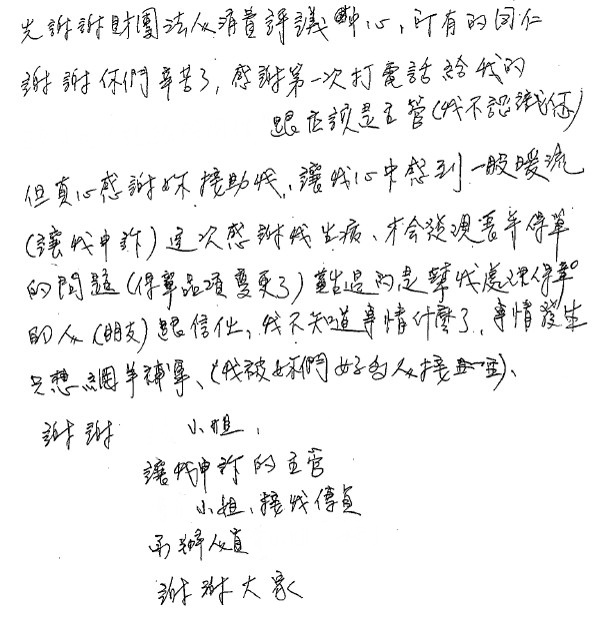 先謝謝財團法人消費評議中心,所有的同仁
謝謝你們辛苦了,感謝第一次打電話給我的
跟應該是主管(我不認識你)
但真心感謝妳接助我,讓我心中感到一股暖流
(讓我申訴)這次感謝我生病、才会發現舊年保單
的問題(保單品項變更了)難過的是幫我處理保單
的人(朋友)跟信任,我不知道事情什麼了,事情發生
只想亡羊補牢、(我被妳們好的人接
謝謝 小姐,
讓我申訴的主管
小姐、接我傳真
承辦人員
謝謝大家